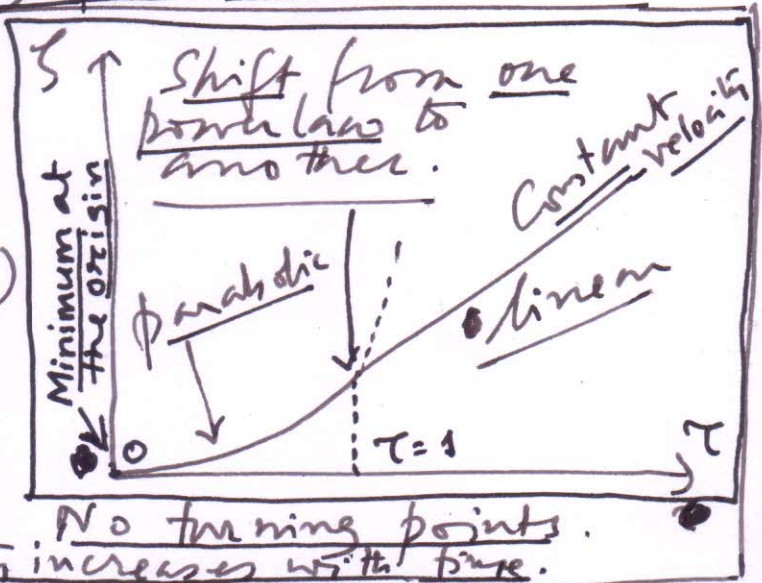 ζ
Shift from one
power law to
another.
Minimum at
the origin
parabolic
Constant
velocity
linear
0
τ=1
τ
No turning points.
increases with time.